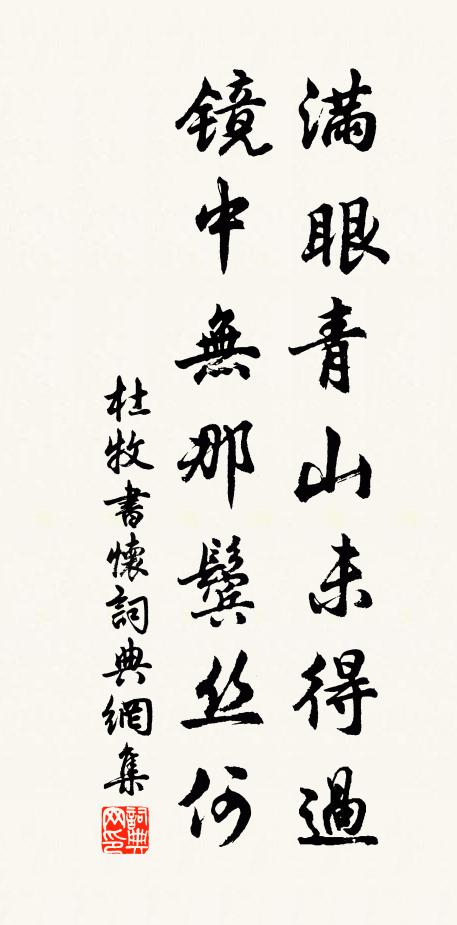 滿眼青山未得過
镜中無那鬓丝何
杜牧書懷詞典網集
詞典网印